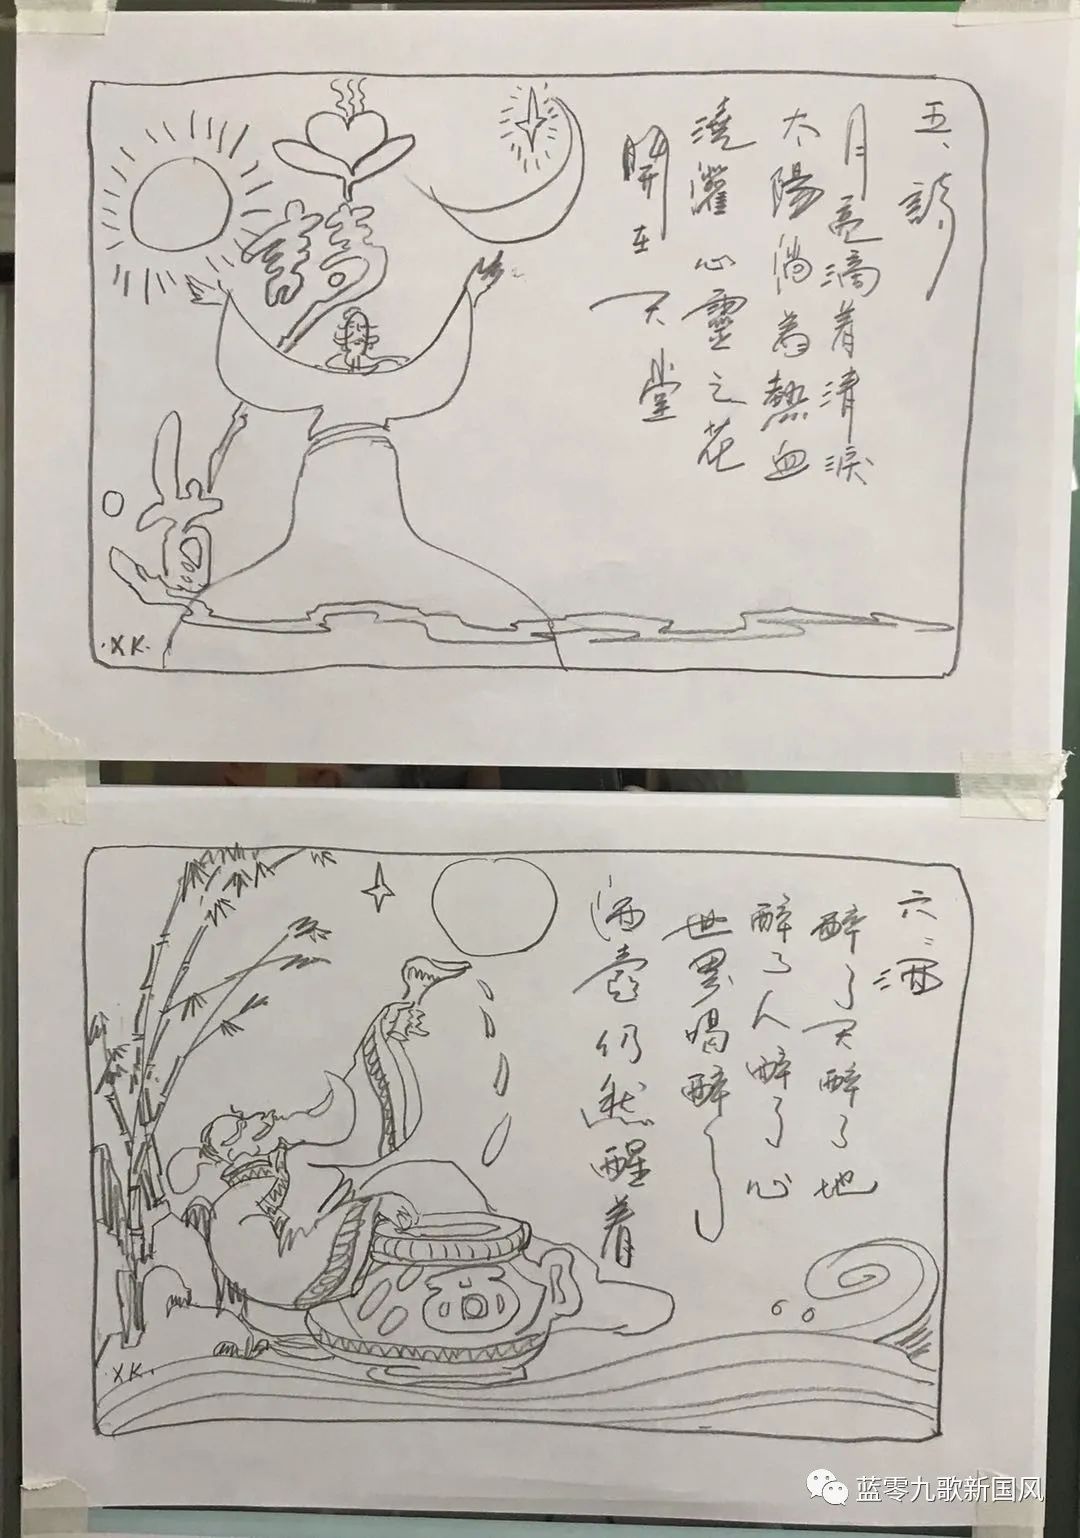 五、詩
月亮滴着清淚
太陽淌着熱血
澆灌心靈之花
開在天堂
·XK·
六、酒
醉了天醉了地
醉了人醉了心
世界喝醉了
酒壺仍然醒着
·XK·
蓝零九歌新国风